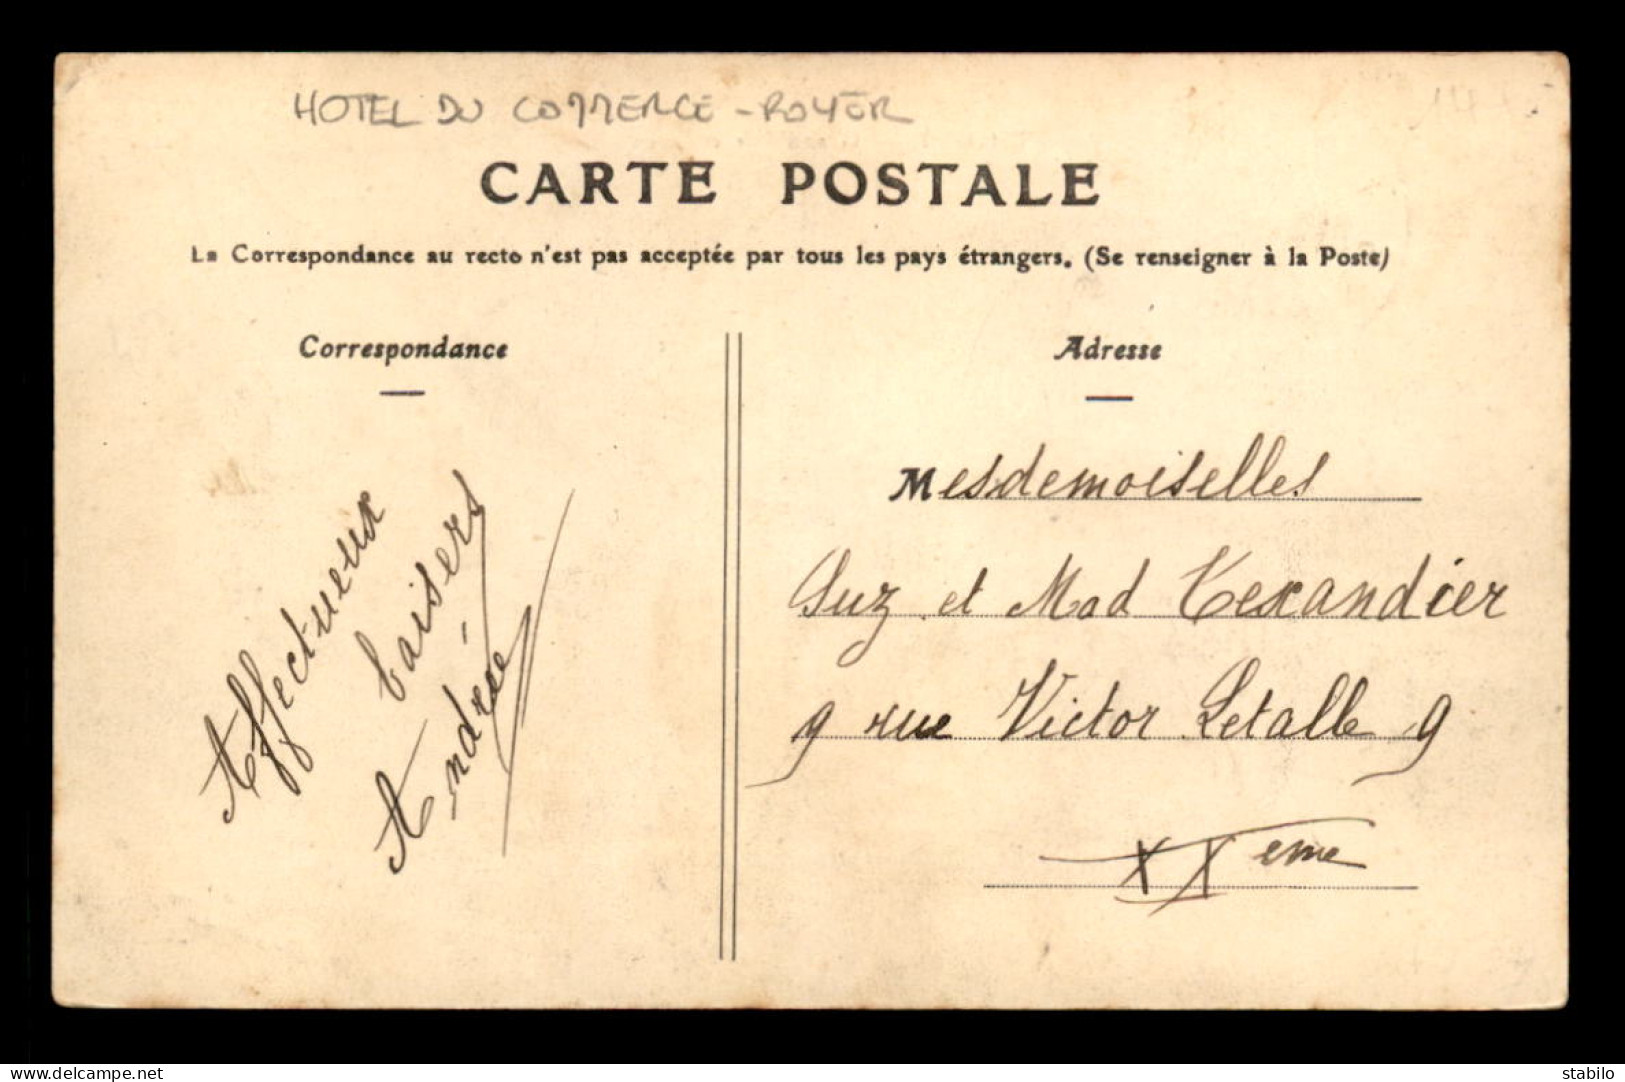 HOTEL DU COMMERCE - ROYER
CARTE POSTALE
La Correspondance au recto n'est pas acceptée par tous les pays étrangers. (Se renseigner à la Poste)
Correspondance
Affectueux
baisers
Andrée
Adresse
Mesdemoiselles
Suz et Mad Texandier
9 rue Victor Letalle 9
XXeme
www.delcampe.net
stabilo